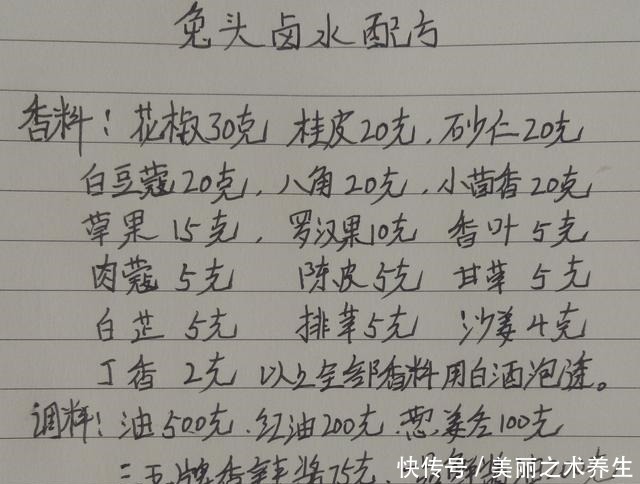 兔头卤水配方
香料：花椒30克 桂皮20克，砂仁20克
白豆蔻20克，八角20克，小茴香20克
草果15克，罗汉果10克 香叶5克
肉蔻5克 陈皮5克 甘草5克
白芷5克 排草5克 沙姜4克
丁香2克 以上全部香料用白酒泡透。
调料：油500克，红油200克，葱姜各100克
三五牌香辣酱75克，
快传号／美丽之术养生